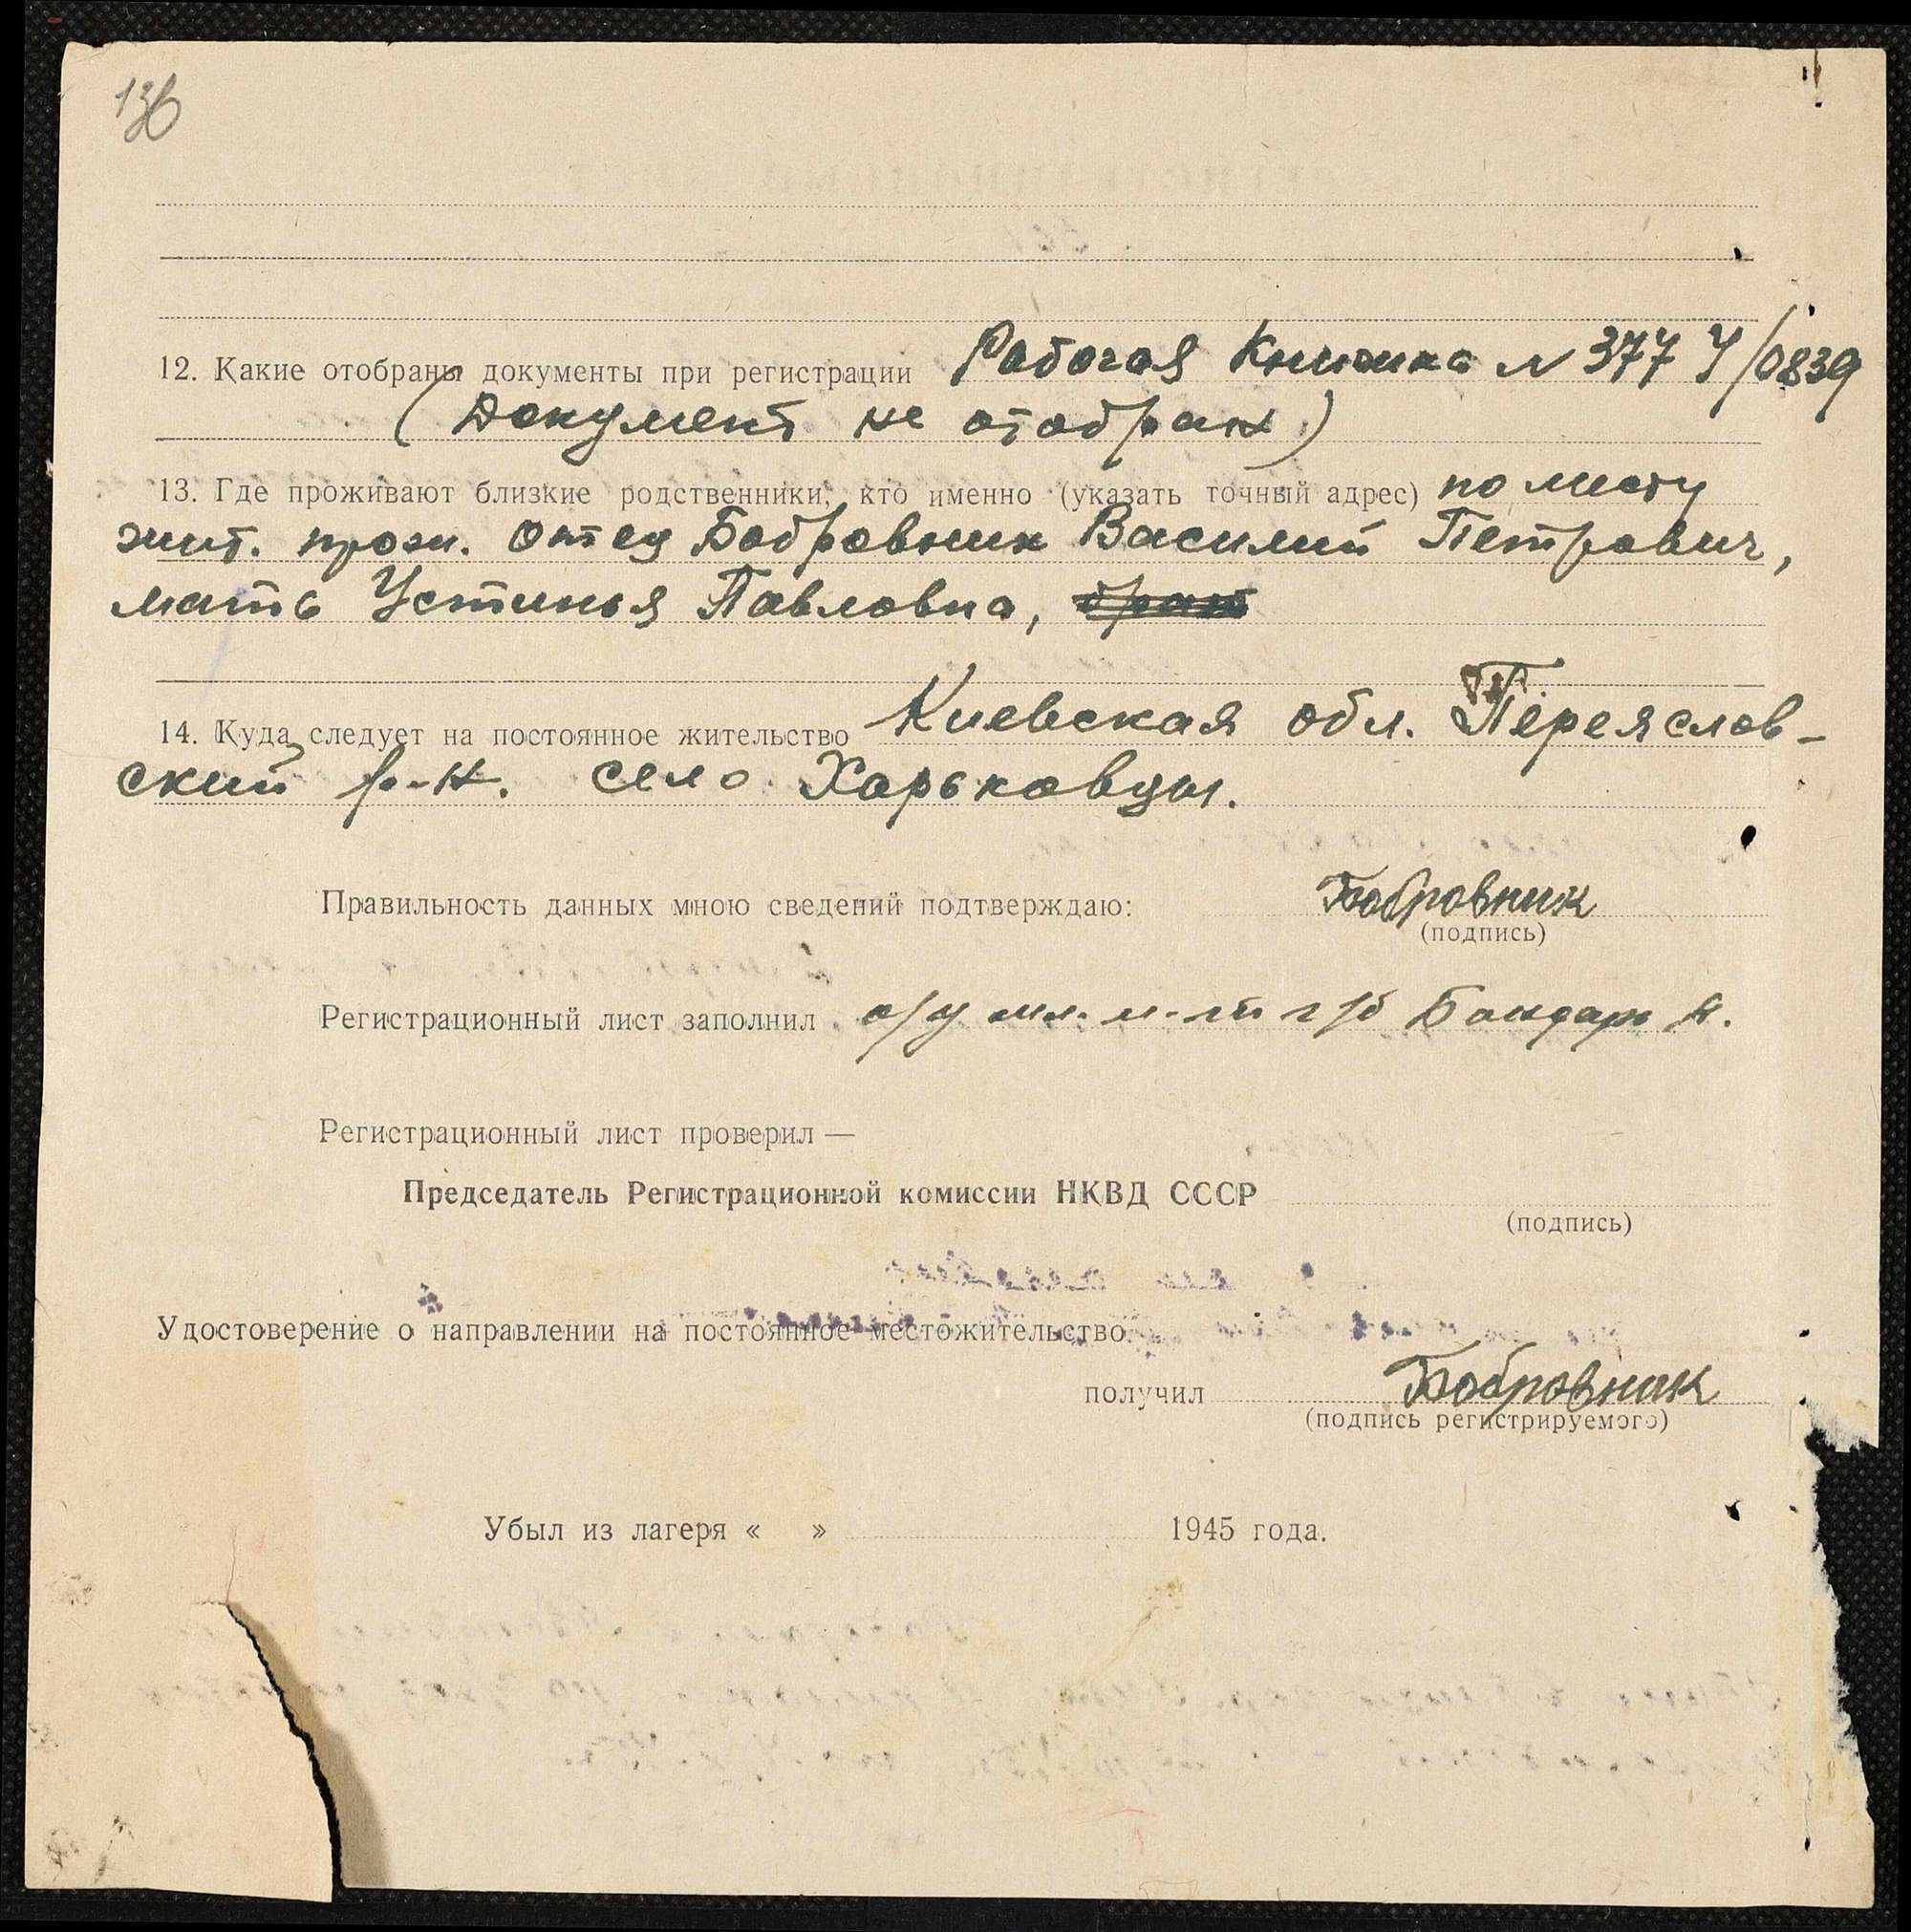 136
12. Какие отобраны документы при регистрации Рабочая Книжка N 377 У/0839
(Документ не отобран)
13. Где проживают близкие родственники, кто именно (указать точный адрес) по месту
жит. прож. отец Бобровник Василий Петрович,
мать Устинья Павловна, брат
14. Куда следует на постоянное жительство Киевская обл. Переяслов-
ский р-н. село Харьковцы.
Правильность данных мною сведений подтверждаю: Бобровник
(подпись)
Регистрационный лист заполнил о/у мл. л-т г/б Бондарь
Регистрационный лист проверил —
Председатель Регистрационной комиссии НКВД СССР
(подпись)
Удостоверение о направлении на постоянное местожительство
получил Бобровник
(подпись регистрируемого)
Убыл из лагеря « » 1945 года.